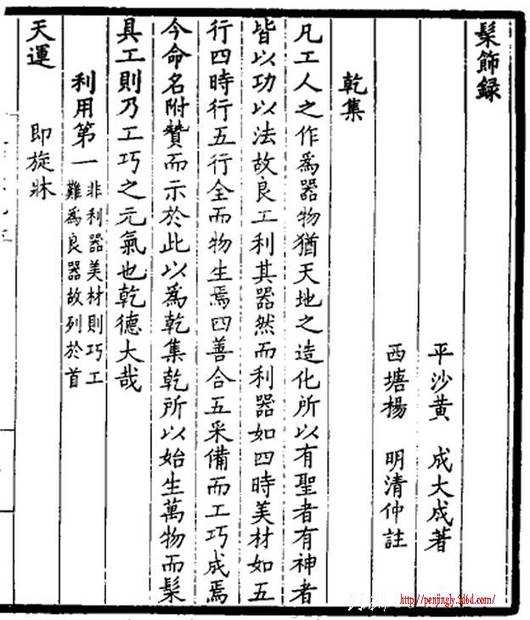 髹飾録
平沙黃 成大成著
西塘楊 明清仲註
乾集
凡工人之作爲器物猶天地之造化所以有聖者有神者
皆以功以法故良工利其器然而利器如四時美材如五
行四時行五行全而物生焉四善合五采備而工巧成焉
今命名附贊而示於此以爲乾集乾所以始生萬物而髹
具工則乃工巧之元氣也乾德大哉
利用第一 非利器美材則巧工
難爲良器故列於首
天運 即旋牀
http://penjingly.5d6d.com/